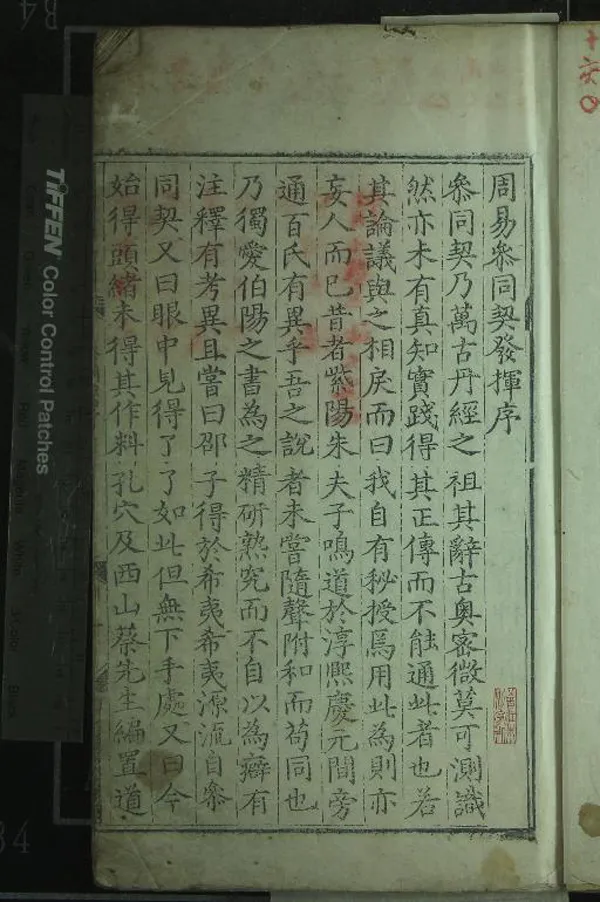 周易參同契發揮序
參同契乃萬古丹經之祖其辭古奧密微莫可測識
然亦未有真知實踐得其正傳而不能通此者也若
其論議與之相戾而曰我自有秘授焉用此為則亦
妄人而已昔者紫陽朱夫子鳴道於淳熈慶元間旁
通百氏有異乎吾之說者未嘗隨聲附和而苟同也
乃獨愛伯陽之書為之精研熟究而不自以為癖有
注釋有考異且嘗曰邵子得於希夷希夷源流自參
同契又曰眼中見得了了如此但無下手處又曰今
始得頭緒未得其作料孔穴及西山蔡先生編置道
TIFFEN Color Control Patches
十六